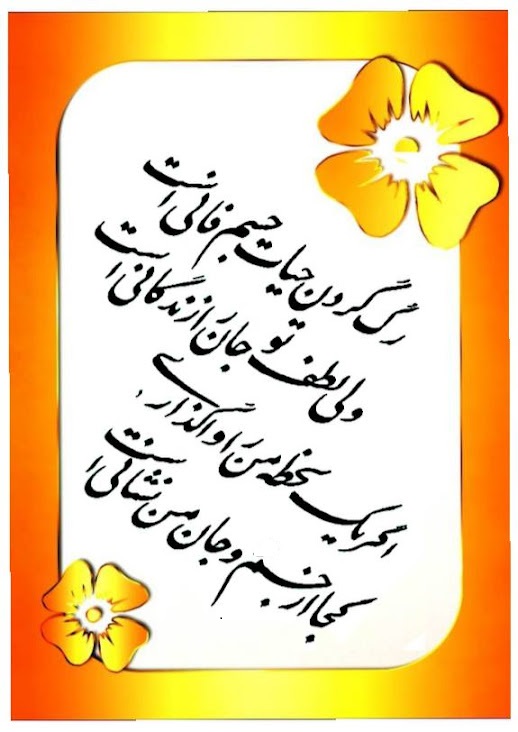 رگ گردن حیات جسم فانی است
ولی لطف تو جان از زندگانی است
اگر یک لحظه من را واگذاری
کجا از جسم و جان من نشانی است